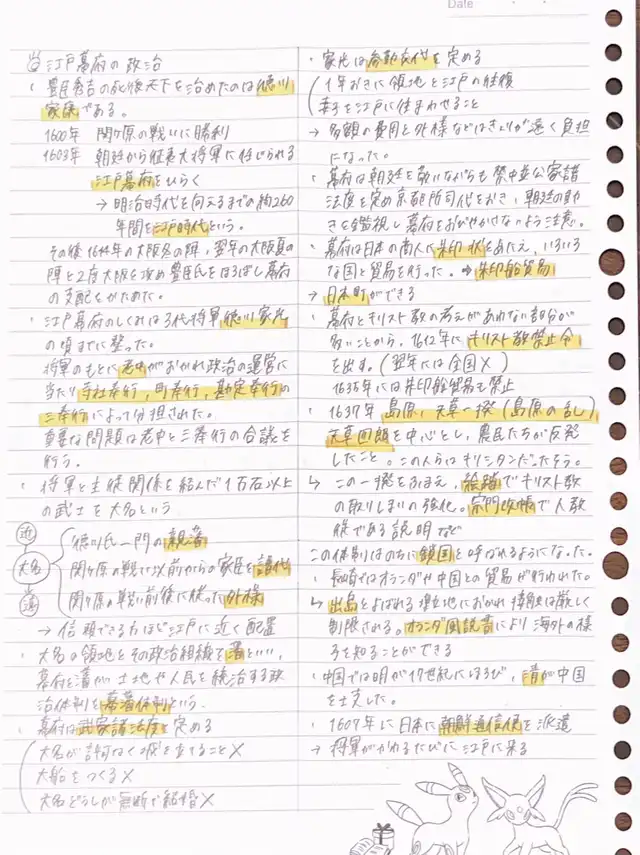 Date
江戸幕府の政治
・豊臣秀吉の死後天下を治めたのは徳川
家康である。
1600年 関ヶ原の戦いに勝利
1603年 朝廷から征夷大将軍に任じられる
江戸幕府をひらく
→明治時代を向えるまでの約260
年間を江戸時代という。
その後1614年の大阪冬の陣、翌年の大阪夏の
陣と2度大阪を攻め豊臣氏をほろぼし幕府
の支配をかためた。
・江戸幕府のしくみは3代将軍徳川家光
の頃までに整った。
将軍のもとに老中がおかれ政治の運営に
当たり寺社奉行、町奉行、勘定奉行の
三奉行によって分担された。
重要な問題は老中と三奉行の合議を
行う。
・将軍と主従関係を結んだ1万石以上
の武士を大名という
近
大名
遠
徳川氏一門の親藩
関ヶ原の戦い以前からの家臣を譜代
関ヶ原の戦い前後に従った外様
→信頼できる方ほど江戸に近く配置
・大名の領地とその政治組織を藩といい、
幕府と藩が土地や人民を統治する政
治体制を幕藩体制という。
・幕府は武家諸法度を定める
大名が許可なく城を建てること×
大船をつくる×
大名どうしが無断で結婚×
・家光は参勤交代を定める
1年おきに領地と江戸の往復
妻子を江戸に住まわせること
→多額の費用と外様などはきょりが遠く負担
になった。
・幕府は朝廷を敬いながらも禁中並公家諸
法度を定め京都所司代をおき、朝廷の動
きを監視し幕府をおびやかさないよう注意。
・幕府は日本の商人に朱印状をあたえ、いろいろ
な国と貿易を行った。→朱印船貿易
→日本町ができる
・幕府とキリスト教の考えがあわない部分が
多いことから、1612年にキリスト教禁止令
を出す。(翌年には全国×)
1635年には朱印船貿易も禁止
・1637年 島原、天草一揆(島原の乱)
天草四郎を中心とし、農民たちが反発
したこと。この人らはキリシタンだったそう。
↳この一揆をふまえ、絵踏でキリスト教
の取りしまりの強化。宗門改帳で人数
様である説明など
この体制はのちに鎖国と呼ばれるようになった。
・長崎ではオランダや中国との貿易が行われた。
↳出島とよばれる埋立地におかれ接触は厳しく
制限される。オランダ風説書により海外の様
子を知ることができる
・中国では明が17世紀にほろび、清が中国
を支した。
・1607年に日本に朝鮮通信使を派遣
→将軍がかわるたびに江戸に来る